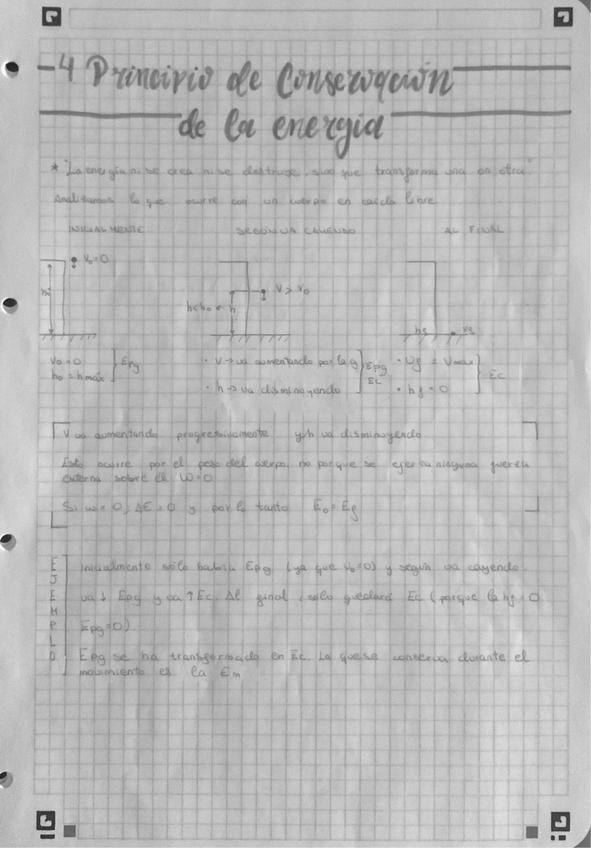 4 Principio de Conservación
de la energía
* "La energía ni se crea ni se destruye, sino que transforma una en otra"
Analizamos lo que ocurre con un cuerpo en caída libre
INICIALMENTE SEGÚN VA CAYENDO AL FINAL
V₀=0
h
h<h₀ h
V > V₀
hf
V₀=0
h₀ = hmáx
Epg
· V → va aumentando por la g
· h → va disminuyendo
Epg
Ec
· = Vmáx
· hf = 0
Ec
V va aumentando progresivamente y h va disminuyendo
Esto ocurre por el peso del cuerpo, no porque se ejerza ninguna fuerza
externa sobre él W=0
Si W = 0, ΔE = 0 y por lo tanto E₀ = Ef
EJEMPLO
Inicialmente sólo habría Epg (ya que V₀=0) y según va cayendo
va ↓ Epg y va ↑ Ec. Al final, sólo quedará Ec (porque la hf = 0
Epg=0)
Epg se ha transformado en Ec. La que se conserva durante el
movimiento es la Em